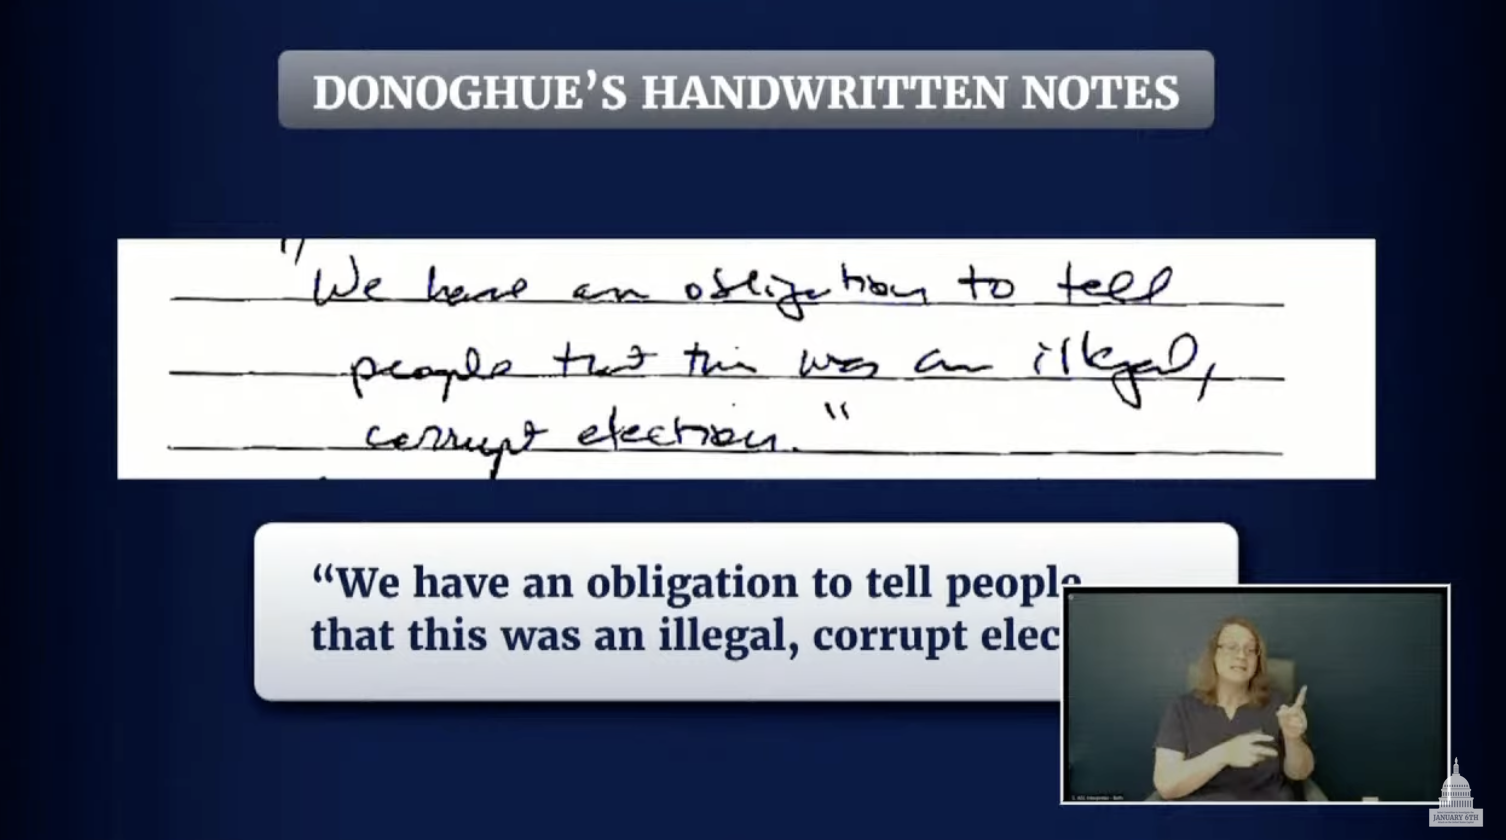 DONOGHUE'S HANDWRITTEN NOTES
"We have an obligation to tell
people that this was an illegal,
corrupt election."
“We have an obligation to tell people
that this was an illegal, corrupt elec
JANUARY 6TH